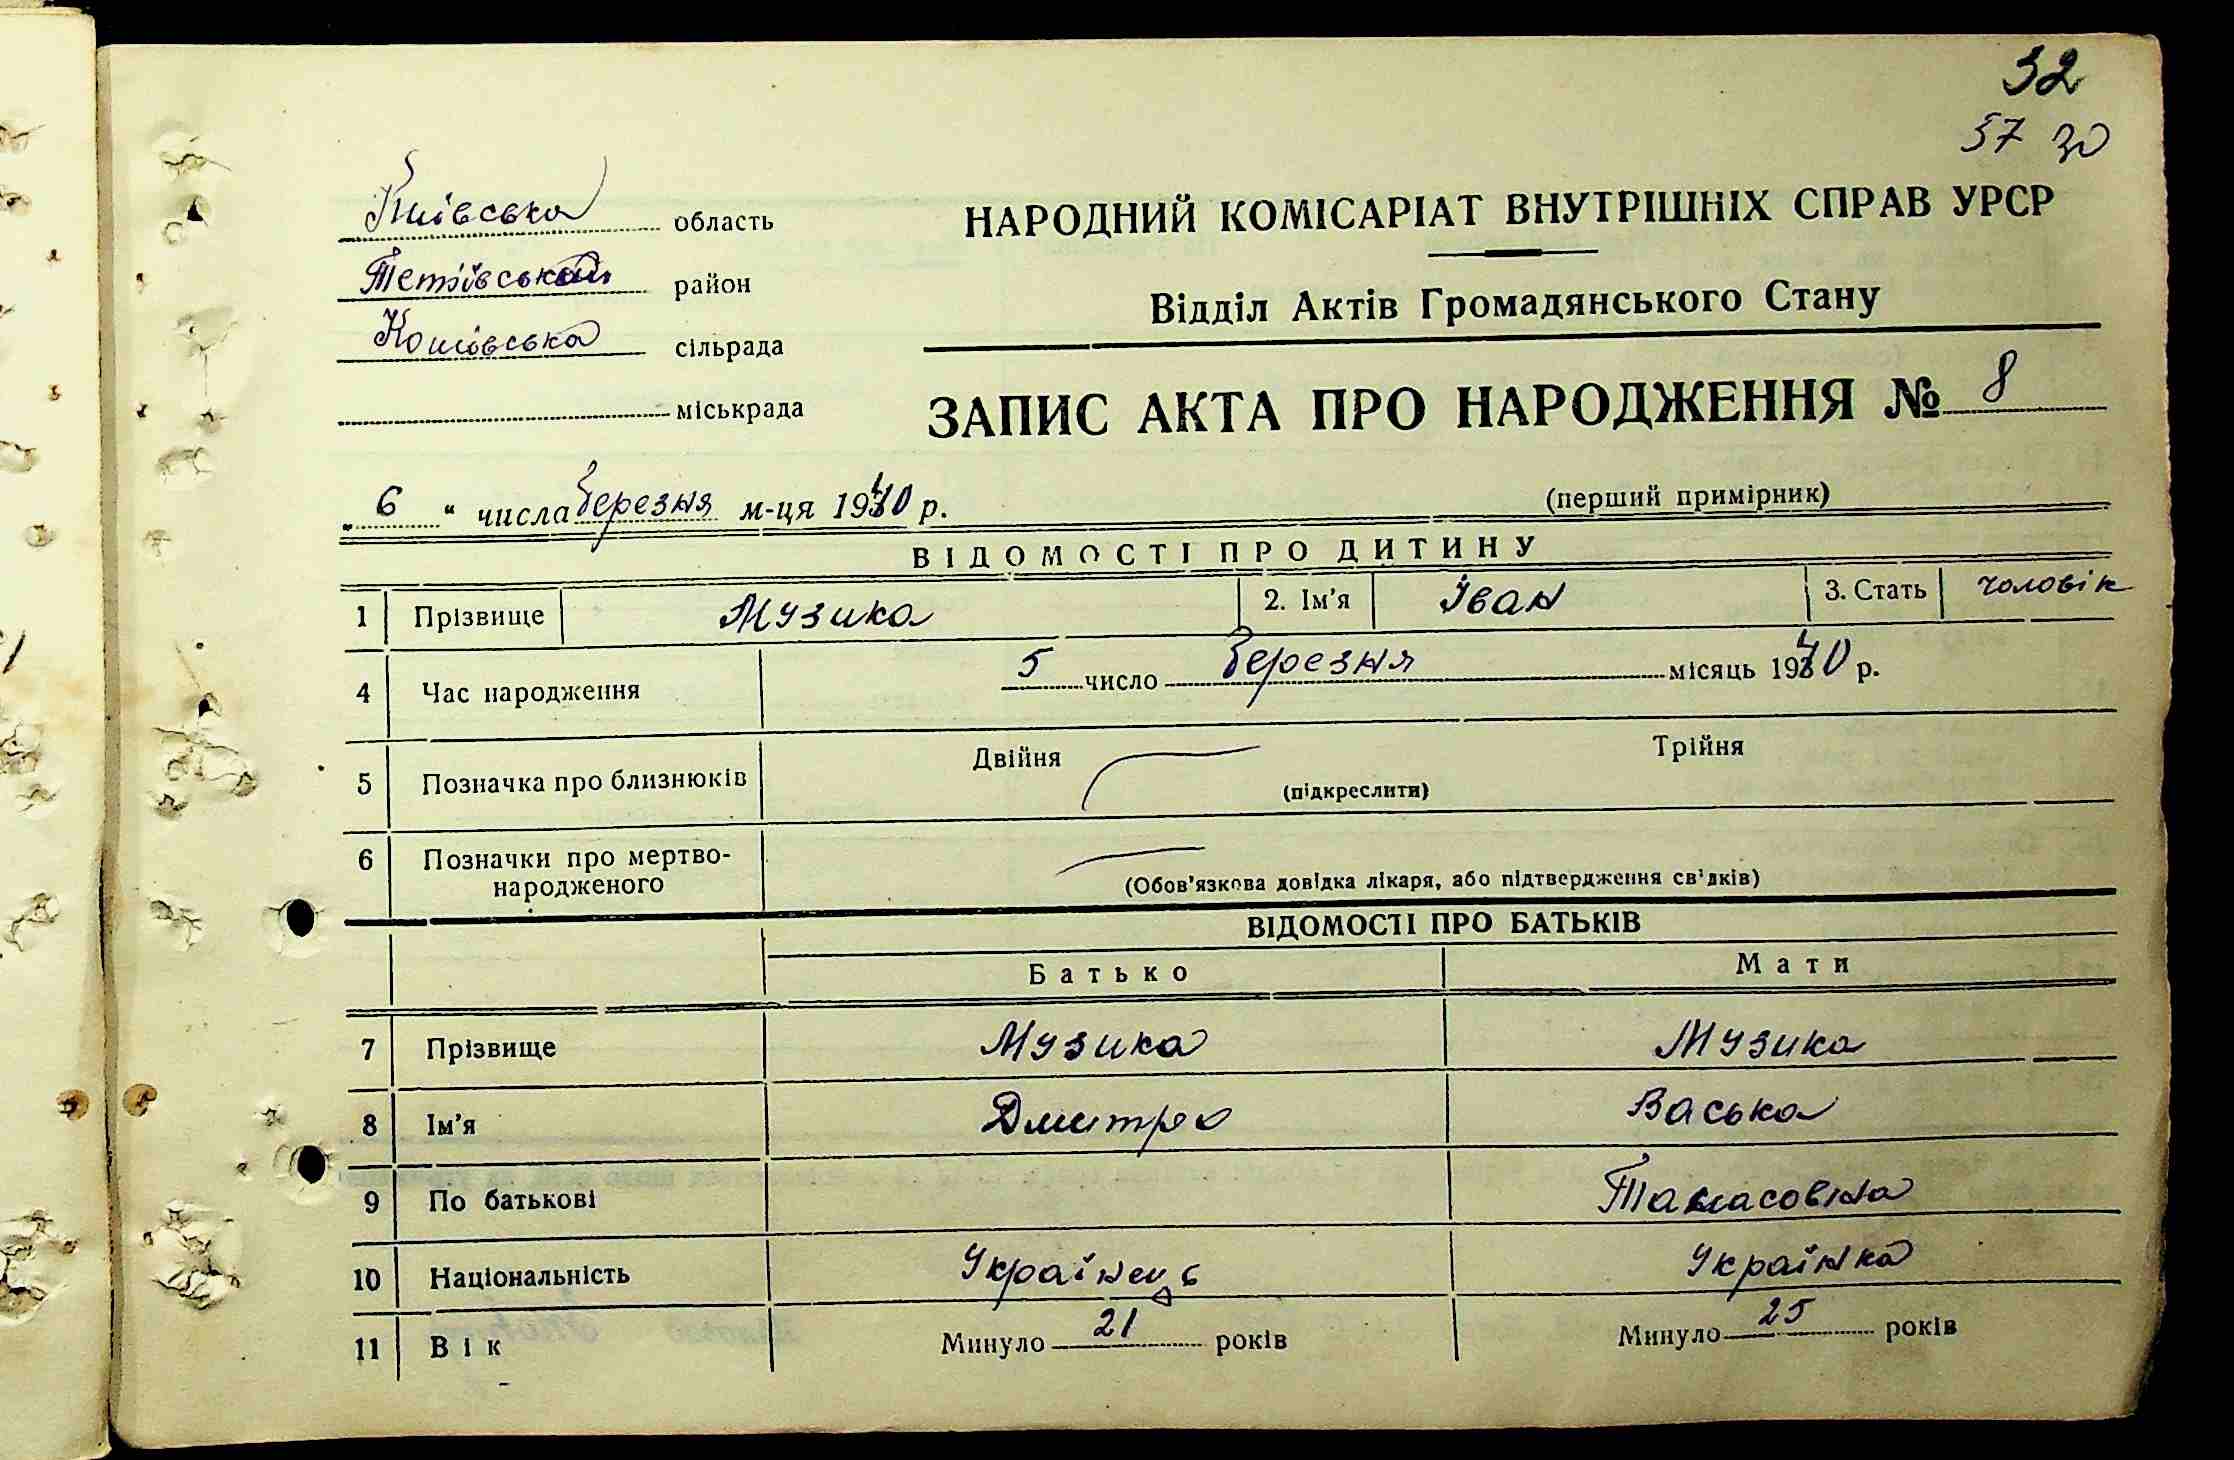 32
57 30
Київська область
Тетіївський район
Кошівська сільрада
міськрада
НАРОДНИЙ КОМІСАРІАТ ВНУТРІШНІХ СПРАВ УРСР
Відділ Актів Громадянського Стану
ЗАПИС АКТА ПРО НАРОДЖЕННЯ № 8
„ 6 “ числа березня м-ця 1940 р. (перший примірник)
ВІДОМОСТІ ПРО ДИТИНУ
1 Прізвище Музика 2. Ім'я Іван 3. Стать чоловік
4 Час народження 5 число березня місяць 1940 р.
5 Позначка про близнюків Двійня Трійня
(підкреслити)
6 Позначки про мертво-
народженого (Обов'язкова довідка лікаря, або підтвердження св'дків)
ВІДОМОСТІ ПРО БАТЬКІВ
Батько Мати
7 Прізвище Музика Музика
8 Ім'я Дмитро Васька
9 По батькові Тамасовна
10 Національність Українець Українка
11 Вік Минуло 21 років Минуло 25 років